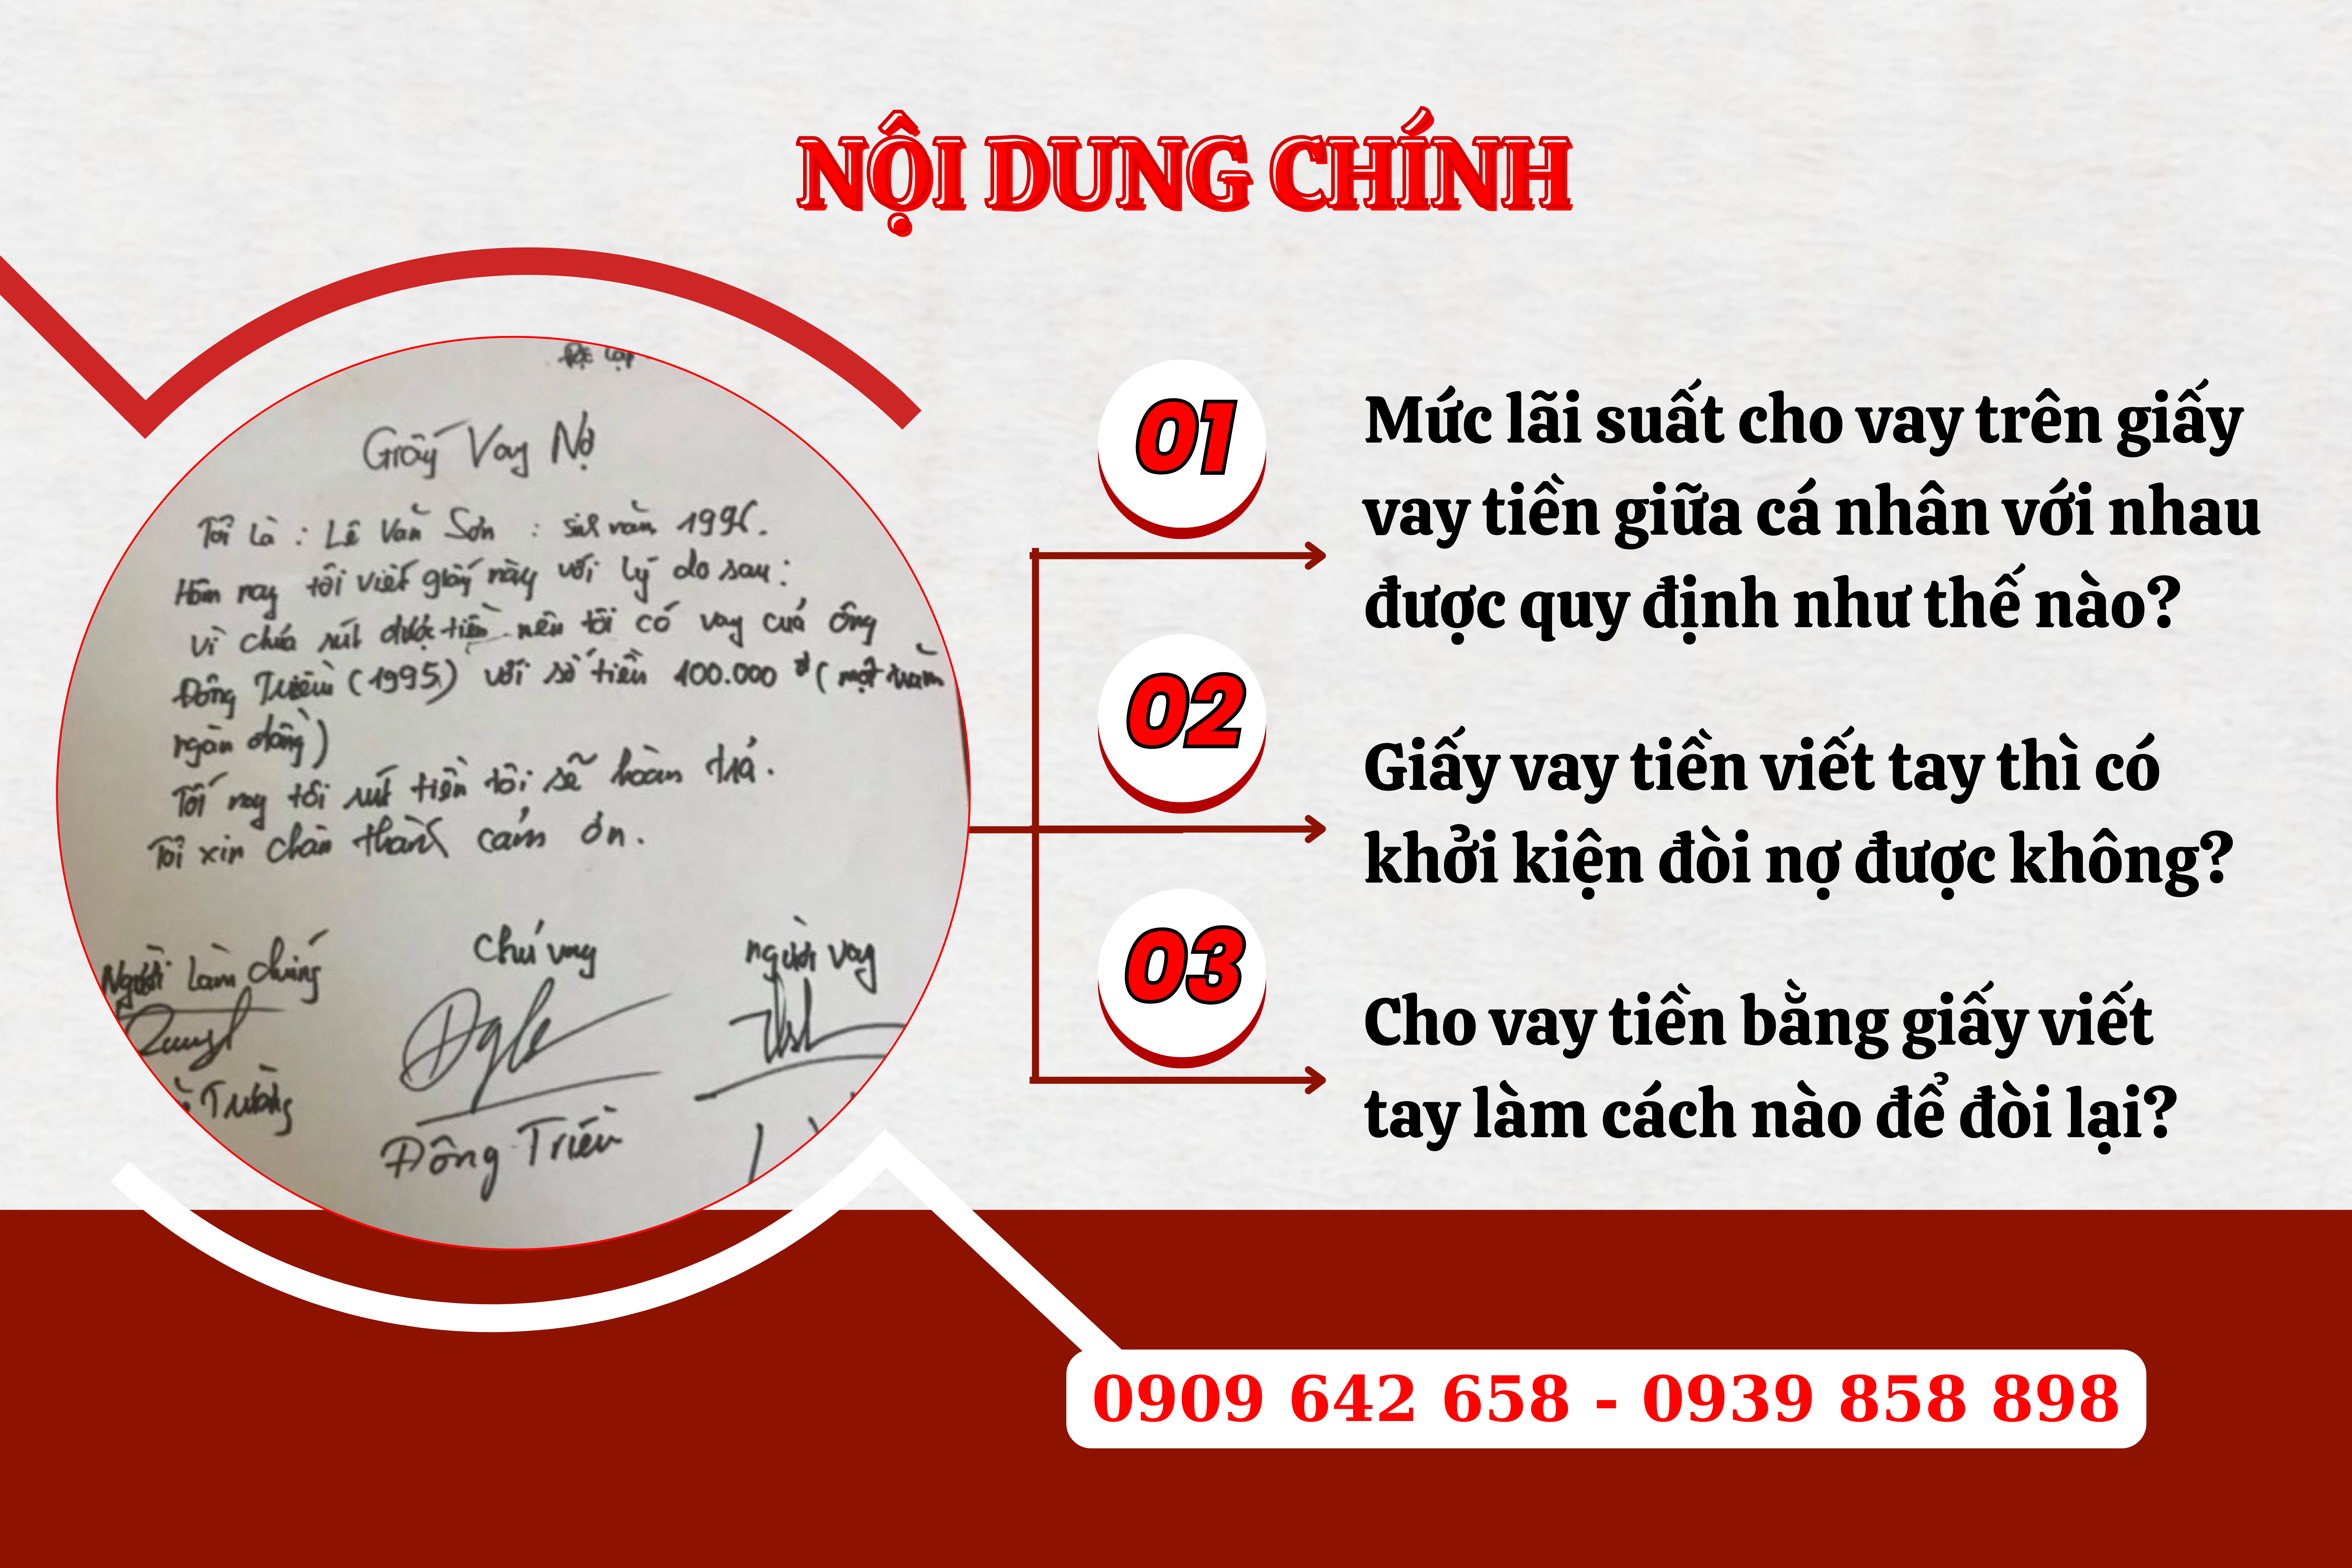 NỘI DUNG CHÍNH
Độc lập
Giấy Vay Nợ
Tôi là : Lê Văn Sơn : sinh năm 1996.
Hôm nay tôi viết giấy này với lý do sau :
Vì chưa rút được tiền nên tôi có vay của ông
Đông Triều (1995) với số tiền 100.000 đ ( một trăm
ngàn đồng )
Tối nay tôi rút tiền tôi sẽ hoàn trả .
Tôi xin chân thành cảm ơn .
Người làm chứng
Chủ vay
người vay
Trường
Đông Triều
01
Mức lãi suất cho vay trên giấy
vay tiền giữa cá nhân với nhau
được quy định như thế nào?
02
Giấy vay tiền viết tay thì có
khởi kiện đòi nợ được không?
03
Cho vay tiền bằng giấy viết
tay làm cách nào để đòi lại?
0909 642 658 - 0939 858 898